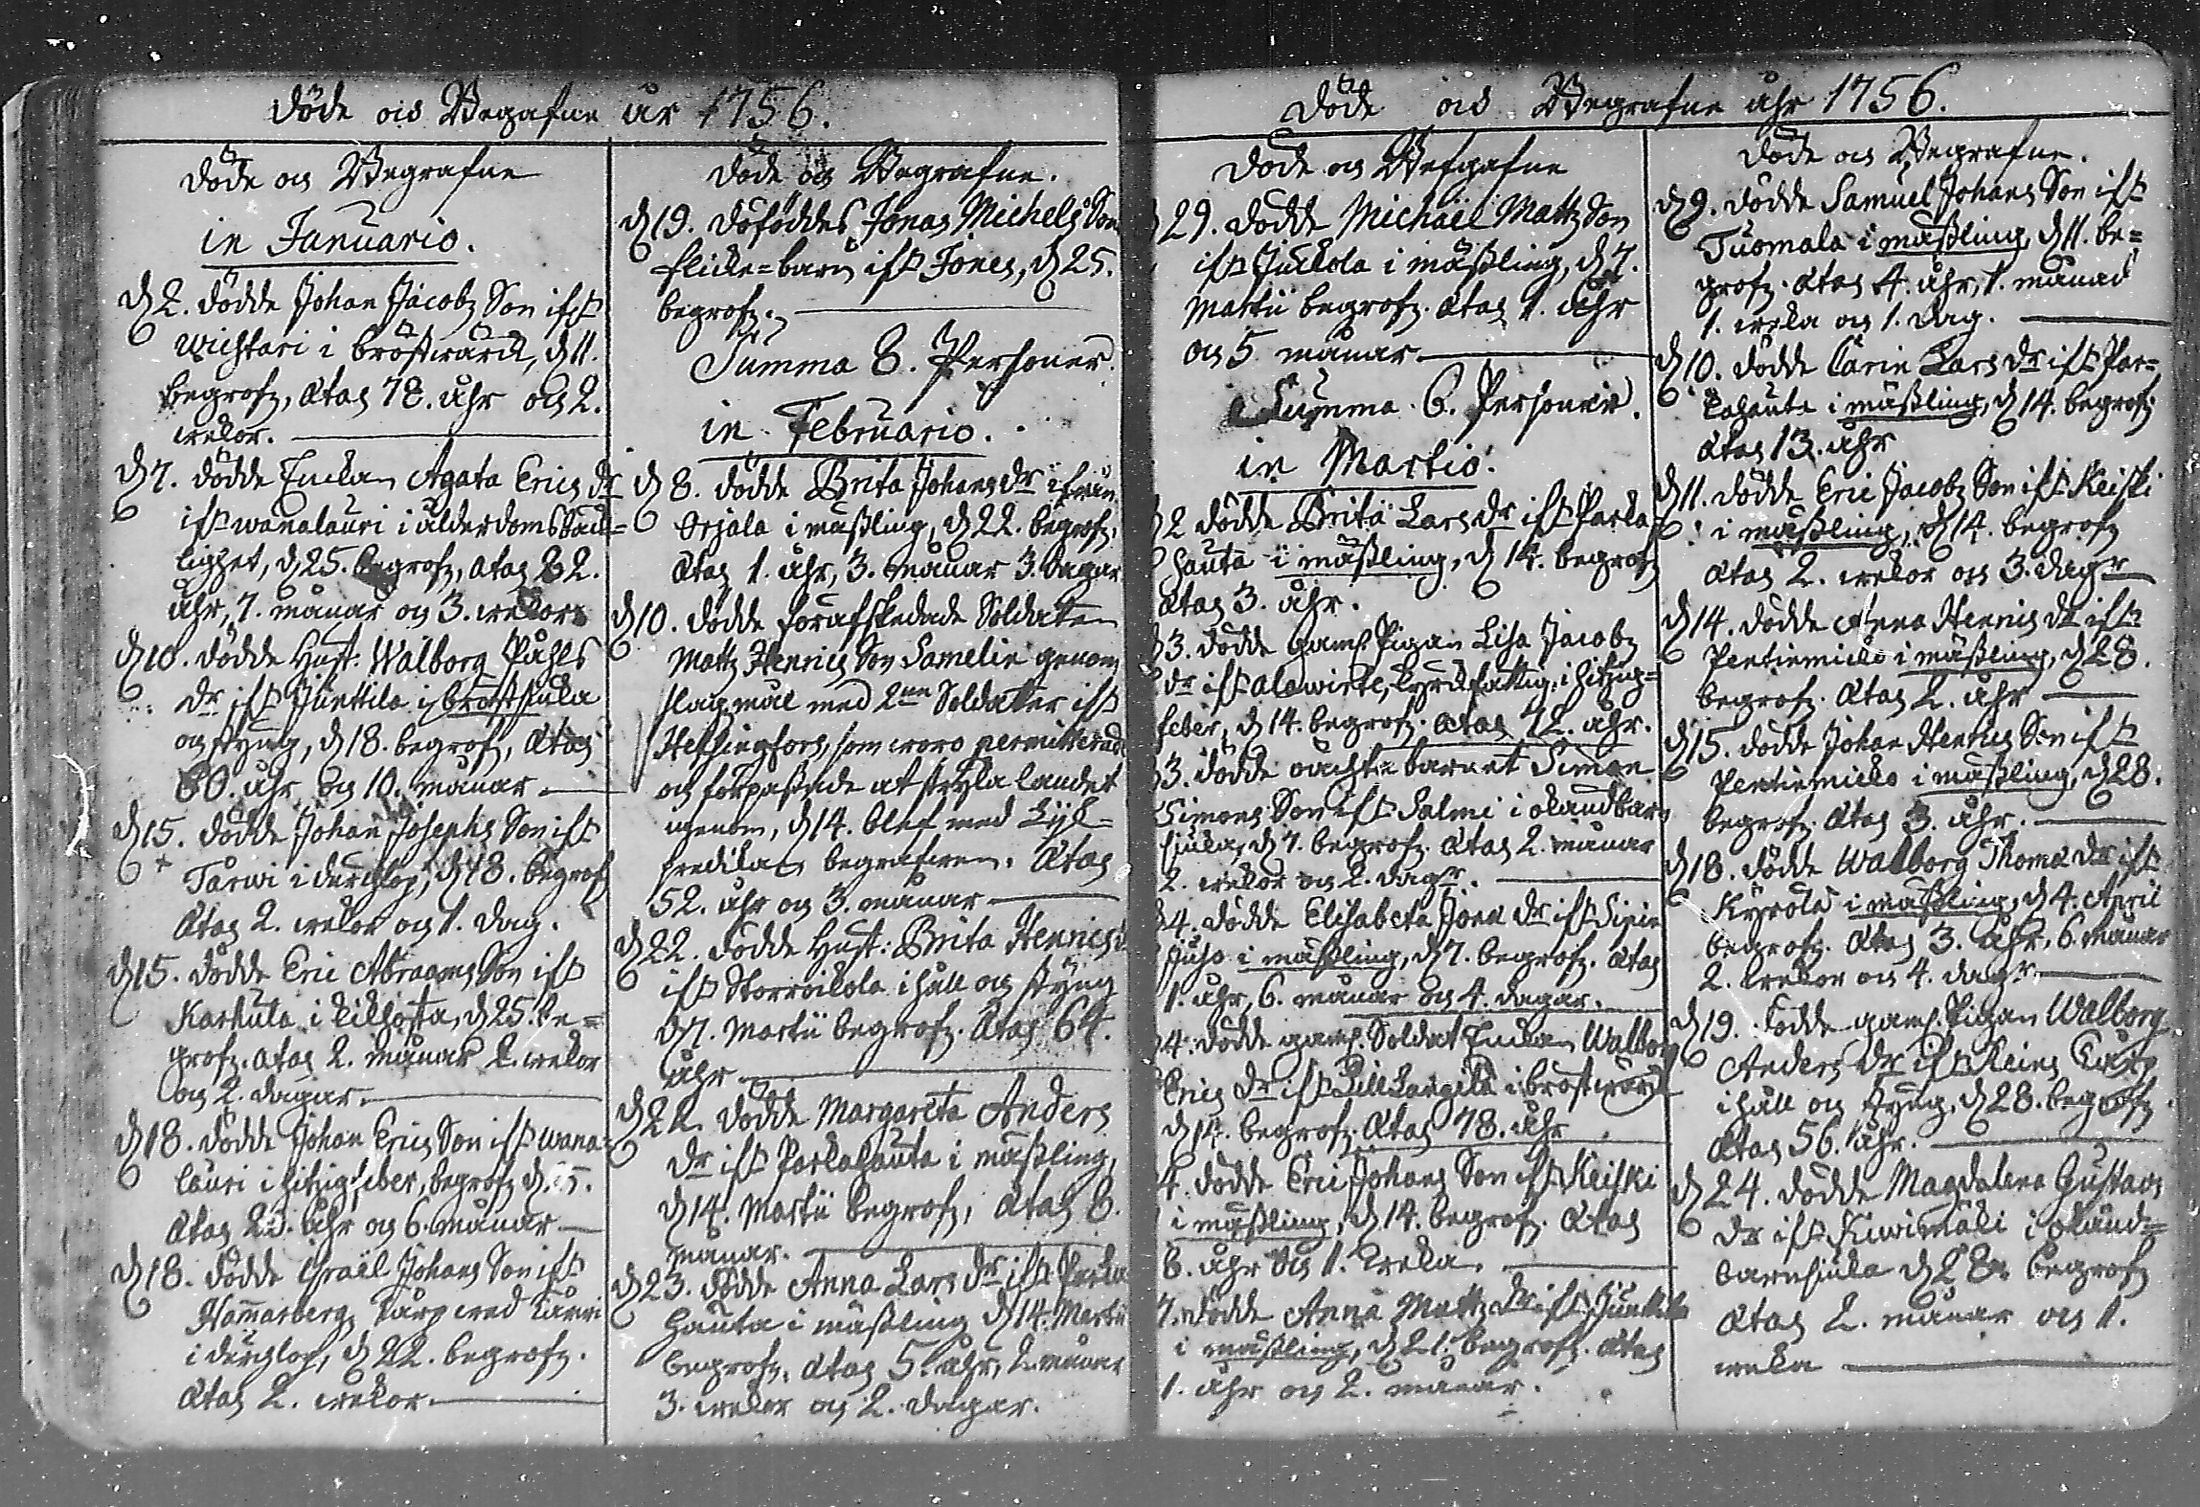 Döde och Begrafne år 1756.
Döde och Begrafne
in Januario.
d. 2. dödde Johan Jacobs Son ifr.
Wichtari i bröstwärck, d. 11.
begrofs, ætas 78. åhr och 2.
wekor.
d. 7. dödde Enckan Agata Erics dr
ifr. wanalauri i ålderdoms
lighet, d. 25. begrofs, ætas 82.
åhr, 7. månar och 3. wekor
d. 10. dödde Hust: Walborg Påhls
dr ifr. Junttila i bröstsiuka
och styng, d. 18. begrofs, ætas
60. åhr och 10. månar
d. 15. dödde Johan Josephs Son ifr.
Tarwi i durchlop, d. 18. begrofs
ætas 2. wekor och 1. dag.
d. 15. dödde Eric Abraams Son ifr.
Karhula i kikhosta, d. 25. be=
grofs. ætas 2. månar 2. wekor
och 2. dagar.
d. 18. dödde Johan Erics Son ifr. wana=
lauri i hitzigfeber, begrofs d. 25.
ætas 23. åhr och 6. månar
d. 18. dödde Israël Johans Son ifr.
Hammarbergs
i durchlop, d. 22. begrofs.
ætas 2. wekor.
Döde och Begrafne.
d. 19. döföddes Jonas Michels Sons
flicke=barn ifr. Jones, d. 25.
begrofs.
Summa 8. Personer.
in Februario.
d. 8. dödde Brita Johans dr ifrån
Orjala i mäßling, d. 22. begrofs,
ætas 1. åhr, 3. månar 3. dagar
d. 10. dödde förafskedade Soldaten
Matts Henrics Son Samelin genom
slagsmål med 2ne Soldater ifr.
Helsingfors, som woro permitterade
och förpassade at stryka landet
igenom, d. 14. blef med Lijk=
predikan begrafwen. ætas
52. åhr och 3. månar
d. 22. dödde Hust: Brita Henrics dr
ifr. Storroikola i håll och styng
d. 7. Martii begrofs. ætas 64.
åhr
d. 22. dödde Margareta Anders
dr ifr. Parkahauta i mäßling,
d. 14. Martii begrofs, ætas 8.
månar.
d. 23. dödde Anna Lars dr ifr. Parka
hauta i mäßling d. 14. Martii
begrofs, ætas 5. åhr, 2. månar
3. wekor och 2. dagar.
Döde och Begrafne åhr 1756.
Döde och Befgafne
29. dödde Michaël Matts Son
ifr. Juckola i mäßling, d. 7.
Martii begrofs. ætas 1. åhr
och 5 månar.
Summa 6. Personer.
in Martio.
2 dödde Brita Lars dr ifr. Parka
hauta i mäßling, d. 14. begrofs
ætas 3. åhr.
3. dödde gaml. Pigan Lisa Jacobs
dr ifr. Alawirte, kyrckfattig, i hitzig=
feber, d. 14. begrofs. ætas 72. åhr.
3. dödde oächta barnet Simon
Simons Son ifr. Salmi i okandbarn
siuka, d. 7. begrofs. ætas 2. månar
2. wekor och 2. dagr.
4. dödde Elisabeta Jona dr ifr.
i mäßling, d. 7. begrofs. ætas
1. åhr, 6. månar och 4. dagar.
4. dödde gaml. Soldat Enckan Walborg
Erics dr ifr. i bröstwärck
d. 14. begrofs. ætas 78. åhr
4. dödde Eric Johans Son ifr. Keiski
i mäßling, d. 14. begrofs. ætas
6. åhr och 1. weka.
7. dödde Anna Matts dr ifr. Junttila
i mäßling, d. 21. begrofs. ætas
1. åhr och 2. månar.
Döde och Begrafne.
d. 9. dödde Samuel Johans Son ifr.
Tuomala i mäßling, d. 11. be=
grofs. ætas 4. åhr, 1. månad
1. weka och 1. dag.
d. 10. dödde Carin Lars dr ifr. Par=
kahauta i mäßling, d. 14. begrofs
ætas 13. åhr
d. 11. dödde Eric Jacobs Son ifr. Keiski
i mäßling, d. 14. begrofs
ætas 2. wekor och 3. dagr
d. 14. dödde Anna Henrics dr ifr.
Pentiemicko i mäßling, d. 28.
begrofs. ætas 2. åhr
d. 15. dödde Johan Henrics Son ifr.
Pentiemicko i mäßling, d. 28.
begrofs. ætas 3. åhr.
d. 18. dödde Walborg Thomæ dr ifr.
Kyrolä i mäßling, d. 4. April
begrofs. ætas 3. åhr, 6. månar
2. wekor och 4. dagr.
d. 19. dödde gaml. Pigan Walborg
Anders dr ifr.
i håll och styng, d. 28. begrofs.
ætas 56. åhr.
d. 24. dödde Magdalena Gustavs
dr ifr. Kiwimäki i okänd=
barnsiuka d. 28. begrofs
ætas 2. månar och 1.
weka